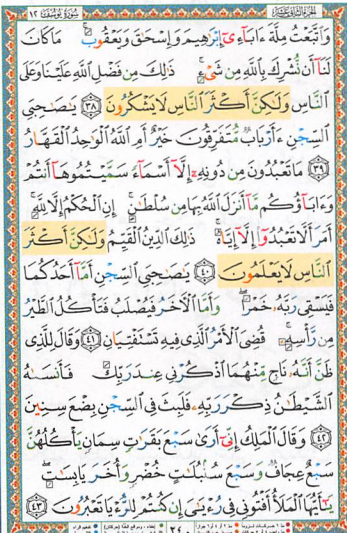 الجزء الثاني عشر سورة يوسف ١٢
وَاتَّبَعْتُ مِلَّةَ ءَابَآءِىٓ إِبْرَٰهِيمَ وَإِسْحَٰقَ وَيَعْقُوبَ ۚ مَا كَانَ
لَنَآ أَن نُّشْرِكَ بِٱللَّهِ مِن شَىْءٍ ۚ ذَٰلِكَ مِن فَضْلِ ٱللَّهِ عَلَيْنَا وَعَلَى
ٱلنَّاسِ وَلَٰكِنَّ أَكْثَرَ ٱلنَّاسِ لَا يَشْكُرُونَ ٣٨ يَٰصَىٰحِبَىِ
ٱلسِّجْنِ ءَأَرْبَابٌ مُّتَفَرِّقُونَ خَيْرٌ أَمِ ٱللَّهُ ٱلْوَٰحِدُ ٱلْقَهَّارُ
٣٩ مَا تَعْبُدُونَ مِن دُونِهِۦٓ إِلَّآ أَسْمَآءً سَمَّيْتُمُوهَآ أَنتُمْ
وَءَابَآؤُكُم مَّآ أَنزَلَ ٱللَّهُ بِهَا مِن سُلْطَٰنٍ ۚ إِنِ ٱلْحُكْمُ إِلَّا لِلَّهِ ۚ
أَمَرَ أَلَّا تَعْبُدُوٓا۟ إِلَّآ إِيَّاهُ ۚ ذَٰلِكَ ٱلدِّينُ ٱلْقَيِّمُ وَلَٰكِنَّ أَكْثَرَ
ٱلنَّاسِ لَا يَعْلَمُونَ ٤٠ يَٰصَىٰحِبَىِ ٱلسِّجْنِ أَمَّآ أَحَدُكُمَا
فَيَسْقِى رَبَّهُۥ خَمْرًا ۖ وَأَمَّا ٱلْءَاخَرُ فَيُصْلَبُ فَتَأْكُلُ ٱلطَّيْرُ
مِن رَّأْسِهِۦ ۚ قُضِىَ ٱلْأَمْرُ ٱلَّذِى فِيهِ تَسْتَفْتِيَانِ ٤١ وَقَالَ لِلَّذِى
ظَنَّ أَنَّهُۥ نَاجٍ مِّنْهُمَا ٱذْكُرْنِى عِندَ رَبِّكَ فَأَنسَىٰهُ
ٱلشَّيْطَٰنُ ذِكْرَ رَبِّهِۦ فَلَبِثَ فِى ٱلسِّجْنِ بِضْعَ سِنِينَ
٤٢ وَقَالَ ٱلْمَلِكُ إِنِّىٓ أَرَىٰ سَبْعَ بَقَرَٰتٍ سِمَانٍ يَأْكُلُهُنَّ
سَبْعٌ عِجَافٌ وَسَبْعَ سُنۢبُلَٰتٍ خُضْرٍ وَأُخَرَ يَابِسَٰتٍ ۖ
يَٰٓأَيُّهَا ٱلْمَلَأُ أَفْتُونِى فِى رُءْيَٰىَ إِن كُنتُمْ لِلرُّءْيَا تَعْبُرُونَ ٤٣
٢٤٠